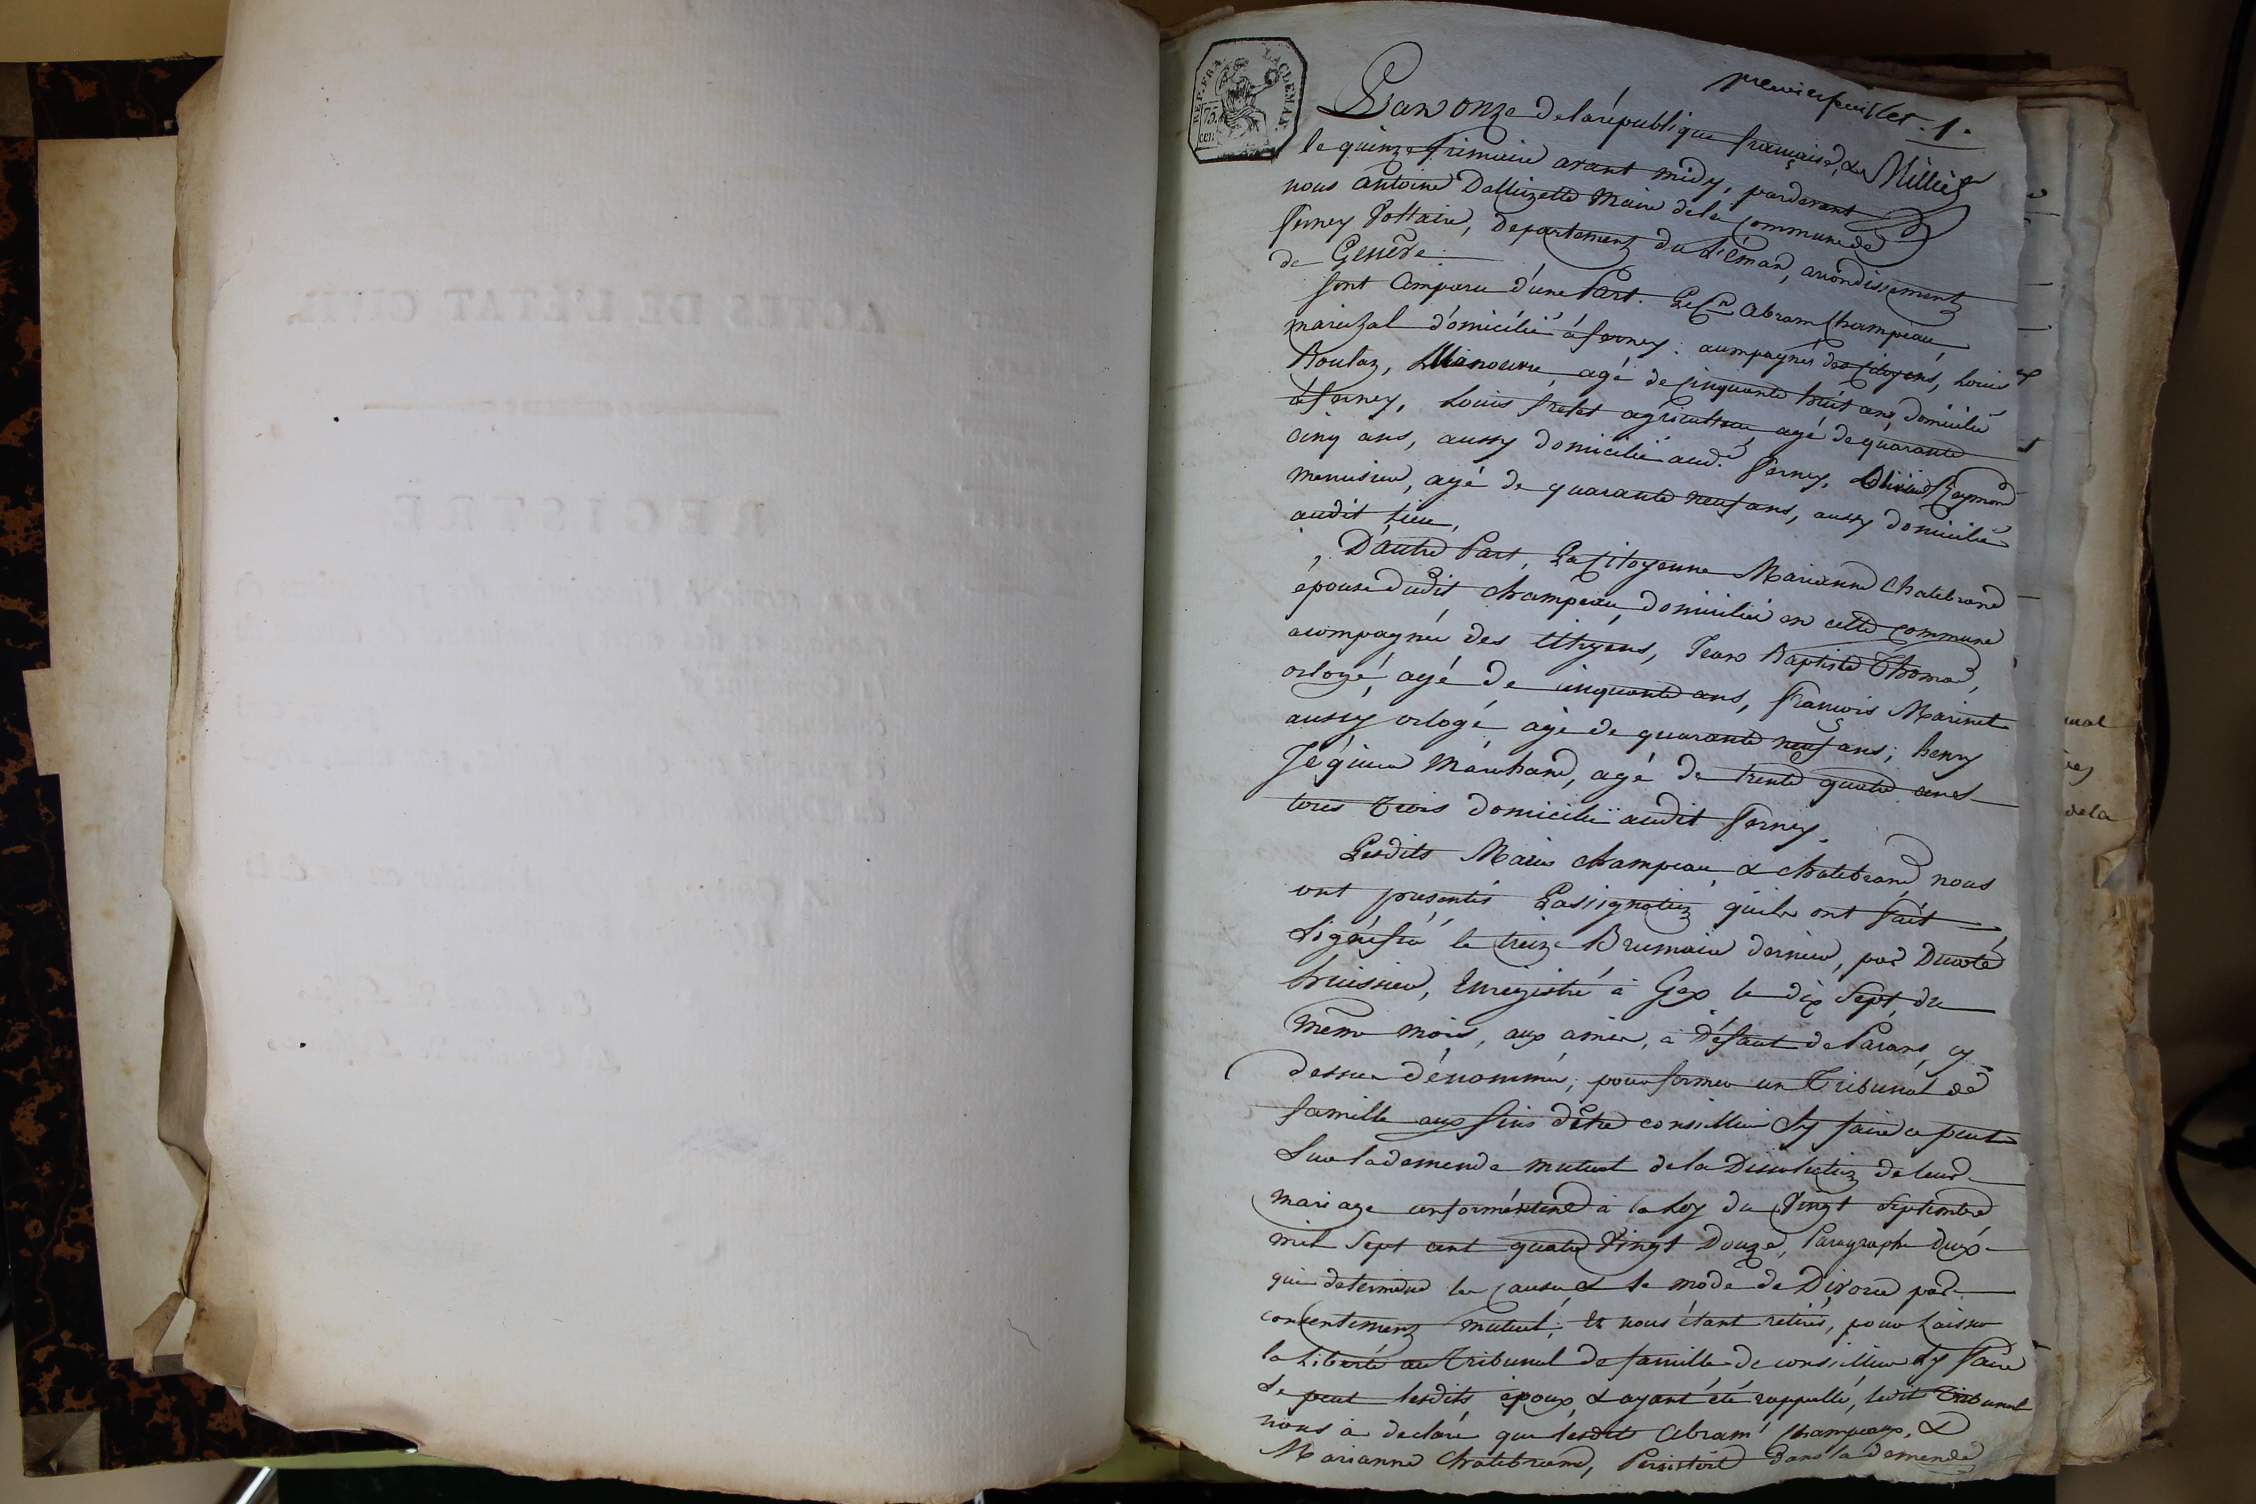 premier feuillet. 1.
REP. FRA.
75. cen.
L'an onze de la république française, &
le quinze frimaire avant midy, pardevant
nous antoine Dallizette Maire de la Commune de
ferney Voltaire, Departement du Léman, arrondissement
de Genêve
sont Comparu d'une Part. Le Cn abram Champeau,
marechal domicilié à ferney. acompagnés des Citoyens, Louis
Roulaz, Manouvre, agé de Cinquante huit ans, domicilié
à ferney, Louis fretet agriculteur agé de quarante
cinq ans, aussy domicilié aud. ferney, Reymond
menusier, agé de quarante neuf ans, aussy domicilié
audit lieu,
D'autre Part, La Citoyenne Marianne Chatebrand
épouse dudit Champeau, domicilié en cette commune
acompagnée des Citoyens, Jean Baptiste Thomas,
orlogé, agé de cinquante ans, françois Marinet
aussy orlogé agé de quarante neuf ans; henry
Jéquier Marchand, agé de trente quatre ans
tous trois domicilié audit ferney.
Lesdits Mariés Champeau & Chatebrand, nous
ont presentés Lassignation qu'ils ont fait
signifié le treize Brumaire dernier, par Ducoté
huissier, Enregistré à Gex le dix Sept, du
même mois, aux amis, à défaut de Parans cy
dessus dénommés, pour former un Tribunal de
famille aux fins d'être conseillier sy faire ce peut
sur la demende mutuel de la Dissolution de leur
mariage conformément à la Loy du Vingt Septembre
mil Sept cent quatre Vingt Douze, Paragraphe deux
qui determine les Causes & le mode de Divorce par
consentement mutuel, Et nous étant retirés, pour Laisser
la Liberté au Tribunal de famille de conseillier sy faire
se peut lesdits époux, & ayant été rappellé, ledit Tribunal
nous à declaré que lesdits Abram Champeaux, &
Marianne Chatebrand, Persistoit dans la demende